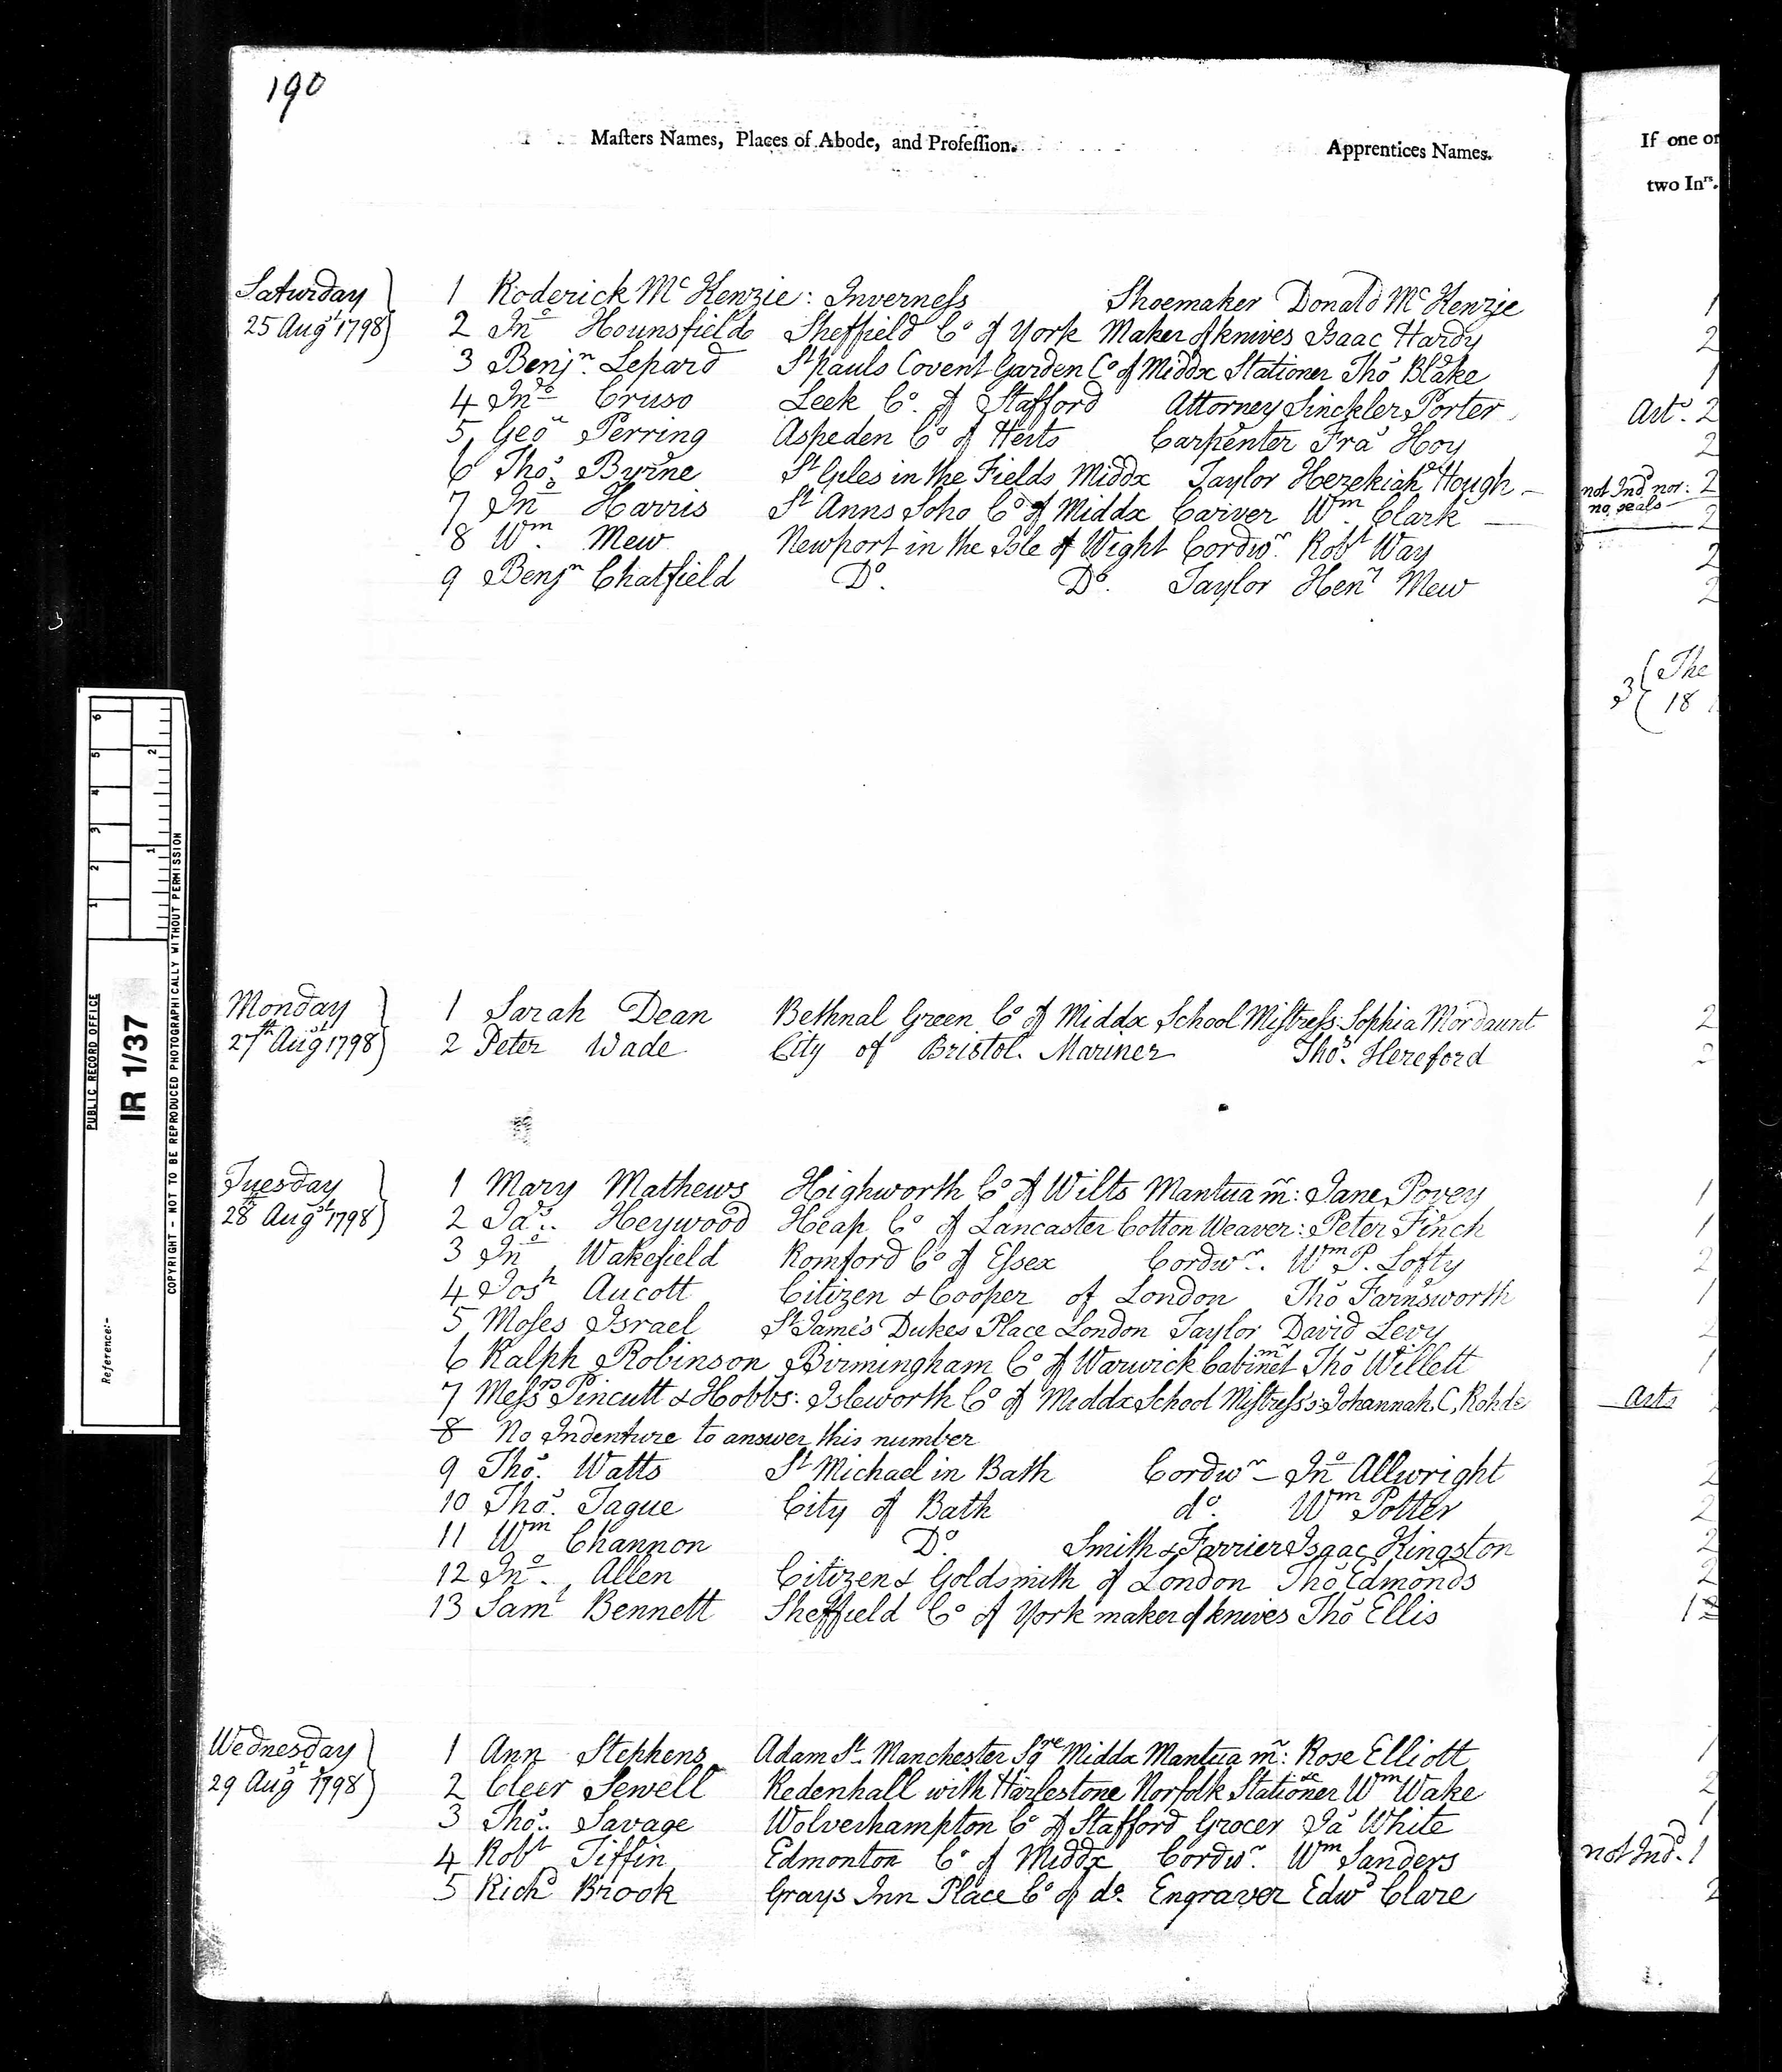 190
Maſters Names, Places of Abode, and Profeſſion. Apprentices Names.
If one or
two Inrs.
Saturday
25 Augt 1798
1 Roderick Mc Kenzie: Inverneſs Shoemaker Donald Mc Kenzie 1
2 Jno Hounsfield Sheffield Co of York Maker of knives Isaac Hardy 2
3 Benjn. Lepard St Pauls Covent Garden Co of Middx Stationer Thos Blake 1
4 Jno Cruso Leek Co. of Stafford Attorney Sinckler Porter Arts. 2
5 Geo Perring Aspeden Co of Herts Carpenter Fras Hoy 2
6 Thos. Byrne St Giles in the Fields Middx Taylor Hezekiah Hough - not Ind nor: 2
no seals
7 Jno Harris St Anns Soho Co of Middx Carver Wm Clark - 2
8 Wm. Mew Newport in the Isle of Wight Cordwr. Robt Way 2
9 Benjn Chatfield Do. Do. Taylor Heny Mew 2
3 The
18
Monday
27th Augst 1798
1 Sarah Dean Bethnal Green Co of Middx School Miſtreſs: Sophia Mordaunt 2
2 Peter Wade City of Bristol. Mariner Thos. Hereford 2
Tuesday
28th Augst 1798
1 Mary Mathews Highworth Co of Wilts Mantua mr: Jane Povey 1
2 Jas.. Heywood Heap Co of Lancaster Cotton Weaver: Peter Finch 1
3 Jno Wakefield Romford Co of Eſsex Cordwr. Wm P. Lofty 2
4 Josh Aucott Citizen & Cooper of London Thos Farnsworth 1
5 Moſes Israel St James Dukes Place London Taylor David Levy 2
6 Ralph Robinson Birmingham Co of Warwick Cabinet mr Thos Willett 1
7 Meſsrs Pincutt & Hobbs: Isleworth Co of Middx School Miſtreſs's: Johannah. C. Rohde Arts
8 No Indenture to answer this number
9 Thos. Watts St Michael in Bath Cordwr - Jno Allwright 2
10 Thos. Tague City of Bath do. Wm Potter 2
11 Wm Channon Do. Smith & Farrier Isaac Kingston 2
12 Jno. Allen Citizen & Goldsmith of London Thos Edmonds 2
13 Saml Bennett Sheffield Co of York maker of knives Thos Ellis 1
Wednesday
29 Augst 1798
1 Ann Stephens Adam St. Manchester Sqre Middx Mantua mr: Rose Elliott 1
2 Cleer Sewell Redenhall with Harlestone Norfolk Stationer &c Wm Wake 2
3 Thos.. Savage Wolverhampton Co of Stafford Grocer Jas White 1
4 Robt Tiffin Edmonton Co of Middx Cordwr. Wm Sanders not Ind. 1
5 Richd Brook Grays Inn Place Co of do. Engraver Edwd Clare 2
PUBLIC RECORD OFFICE
IR 1/37
Reference:-
COPYRIGHT - NOT TO BE REPRODUCED PHOTOGRAPHICALLY WITHOUT PERMISSION
1 2 3 4 5 6
1 2